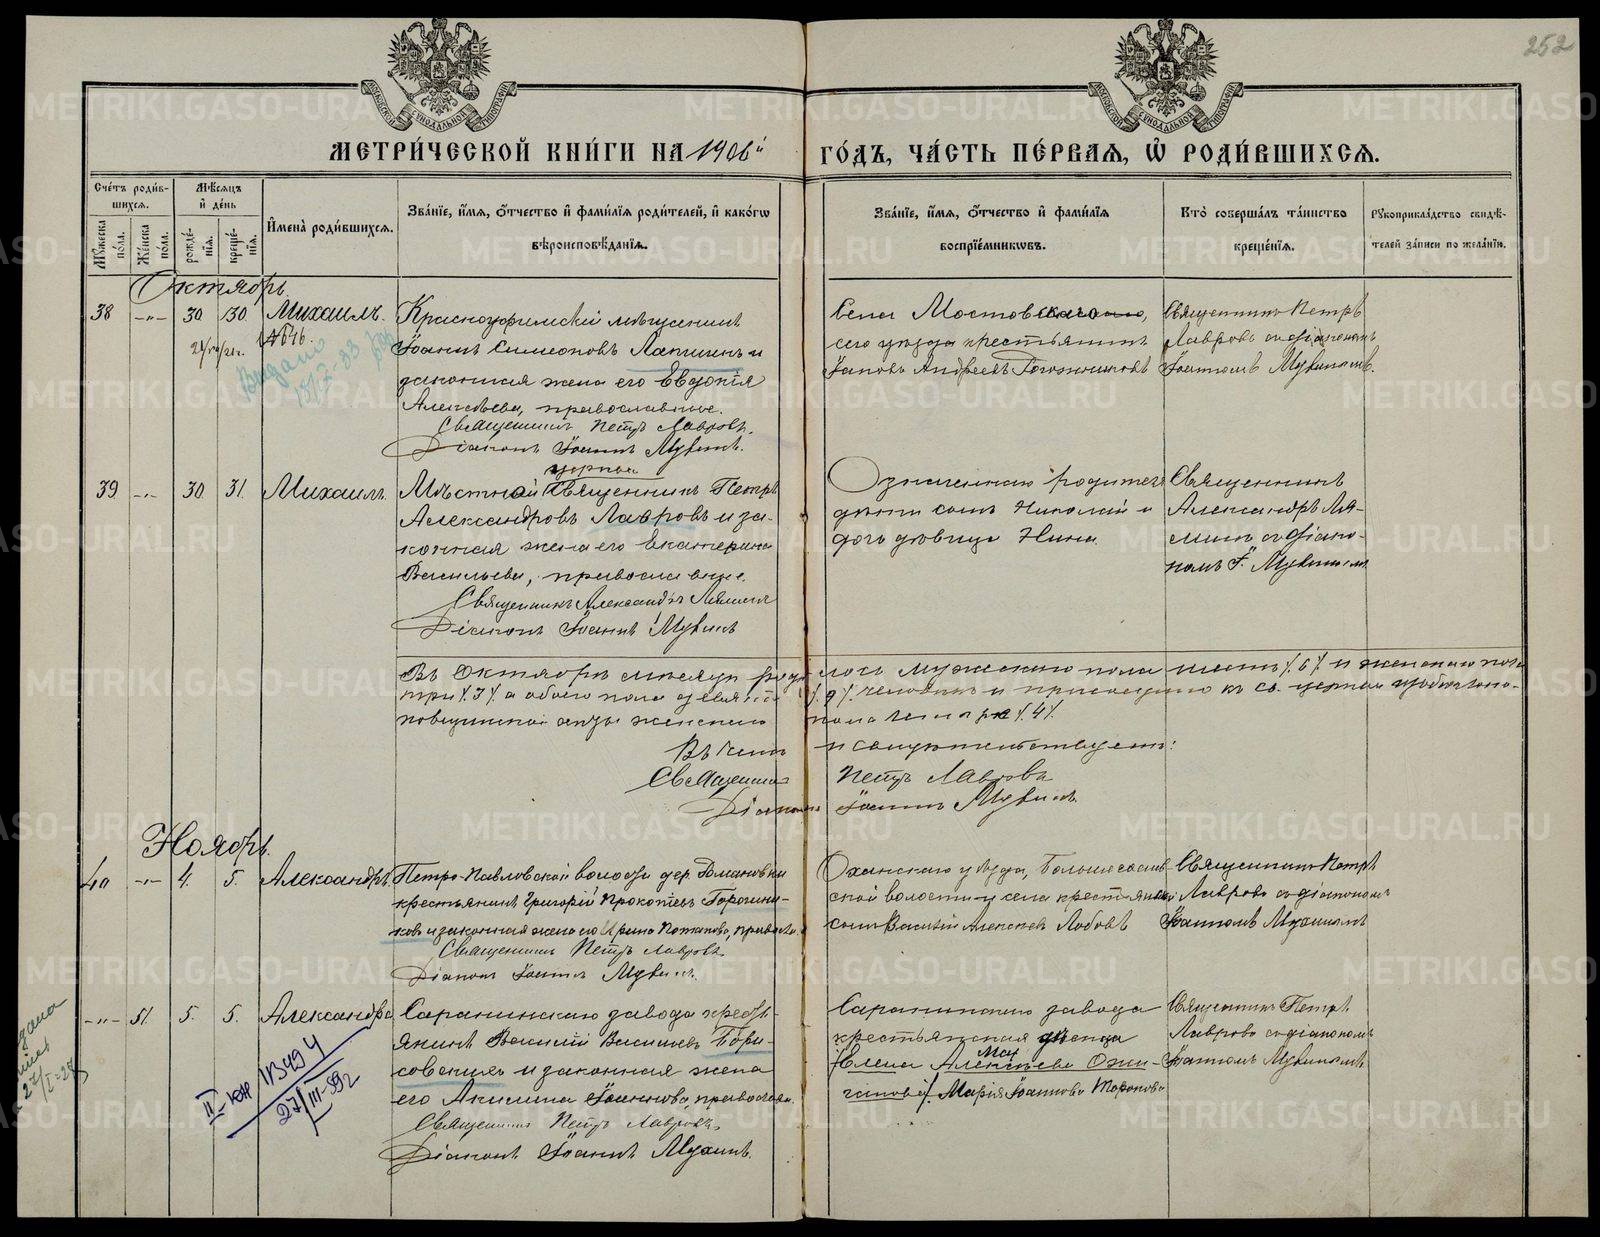 252
МЕТРИЧЕСКОЙ КНИГИ НА 1906й ГОДЪ, ЧАСТЬ ПЕРВАЯ, Ѿ РОДИВШИХСЯ.
Счетъ родив-
шихся.
Мѣсяцъ
и день
Мужеска
пола.
Женска
пола.
рожде-
нія.
креще-
нія.
Имена родившихся.
Званіе, имя, отчество и фамилія родителей, и какогѡ
вѣроисповѣданія.
Званіе, имя, отчество и фамилія
воспріемниковъ.
Кто совершалъ таинство
крещенія.
Рукоприкладство свидѣ-
телей записи по желанію.
Октябрь.
38 -„- 30 30. Михаилъ.
Красноуфимскій мѣщанинъ
Іоаннъ Симеоновъ Лапшинъ и
законная жена его Евдокія
Алексѣева, православные.
Священникъ Петръ Лавровъ.
Діаконъ Іоаннъ Мухинъ.
Села Мостовскаго,
сего уѣзда крестьянинъ
Іаковъ Андреевъ
Священникъ Петръ
Лавровъ съ діакономъ
Іоанномъ Мухинымъ.
Выдано
39 -„- 30 31. Михаилъ.
церкви
Мѣстной священникъ Петръ
Александровъ Лавровъ и за-
конная жена его Екатерина
Васильева, православные.
Священникъ Александръ
Діаконъ Іоаннъ Мухинъ
Означенныхъ родителей
дѣти сынъ Николай и
дочь дѣвица Нина
Священникъ
Александръ
съ діако-
номъ І. Мухинымъ
Въ Октябрѣ мѣсяцѣ родилось мужскаго пола шесть /6/ и женскаго пола
три /3/ а обоего пола девять /9/ человѣкъ и
женскаго пола четыре /4/.
Въ чемъ и свидѣтельствуемъ:
Священникъ Петръ Лавровъ
Діаконъ Іоаннъ Мухинъ.
Ноябрь.
40 -„- 4. 5. Александръ.
Петро-Павловской волости дер. Романовки
крестьянинъ Григорій Прокопіевъ
ковъ и законная жена его Ирина Потапова, правосл.
Священникъ Петръ Лавровъ
Діаконъ Іоаннъ Мухинъ.
Оханскаго уѣзда,
ской волости и села крестьянскій
сынъ Василій Алексѣевъ Лобовъ
Священникъ Петръ
Лавровъ съ діакономъ
Іоанномъ Мухинымъ
-„- 51. 5. 5. Александра
Саранинскаго завода кресть-
янинъ Василій Васильевъ Бори-
совскихъ и законная жена
его Акилина Іоаннова, православн.
Священникъ Петръ Лавровъ.
Діаконъ Іоаннъ Мухинъ.
Саранинскаго завода
крестьянская дѣвица
Елена Алексѣева Ожи-
ганова/. Марія Іоаннова Торопова
Священникъ Петръ
Лавровъ съ діакономъ
Іоанномъ Мухинымъ
27/III-39г
METRIKI.GASO-URAL.RU